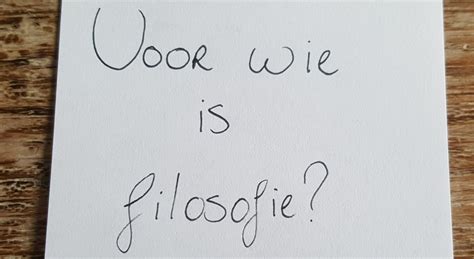 Voor wie
is
filosofie?